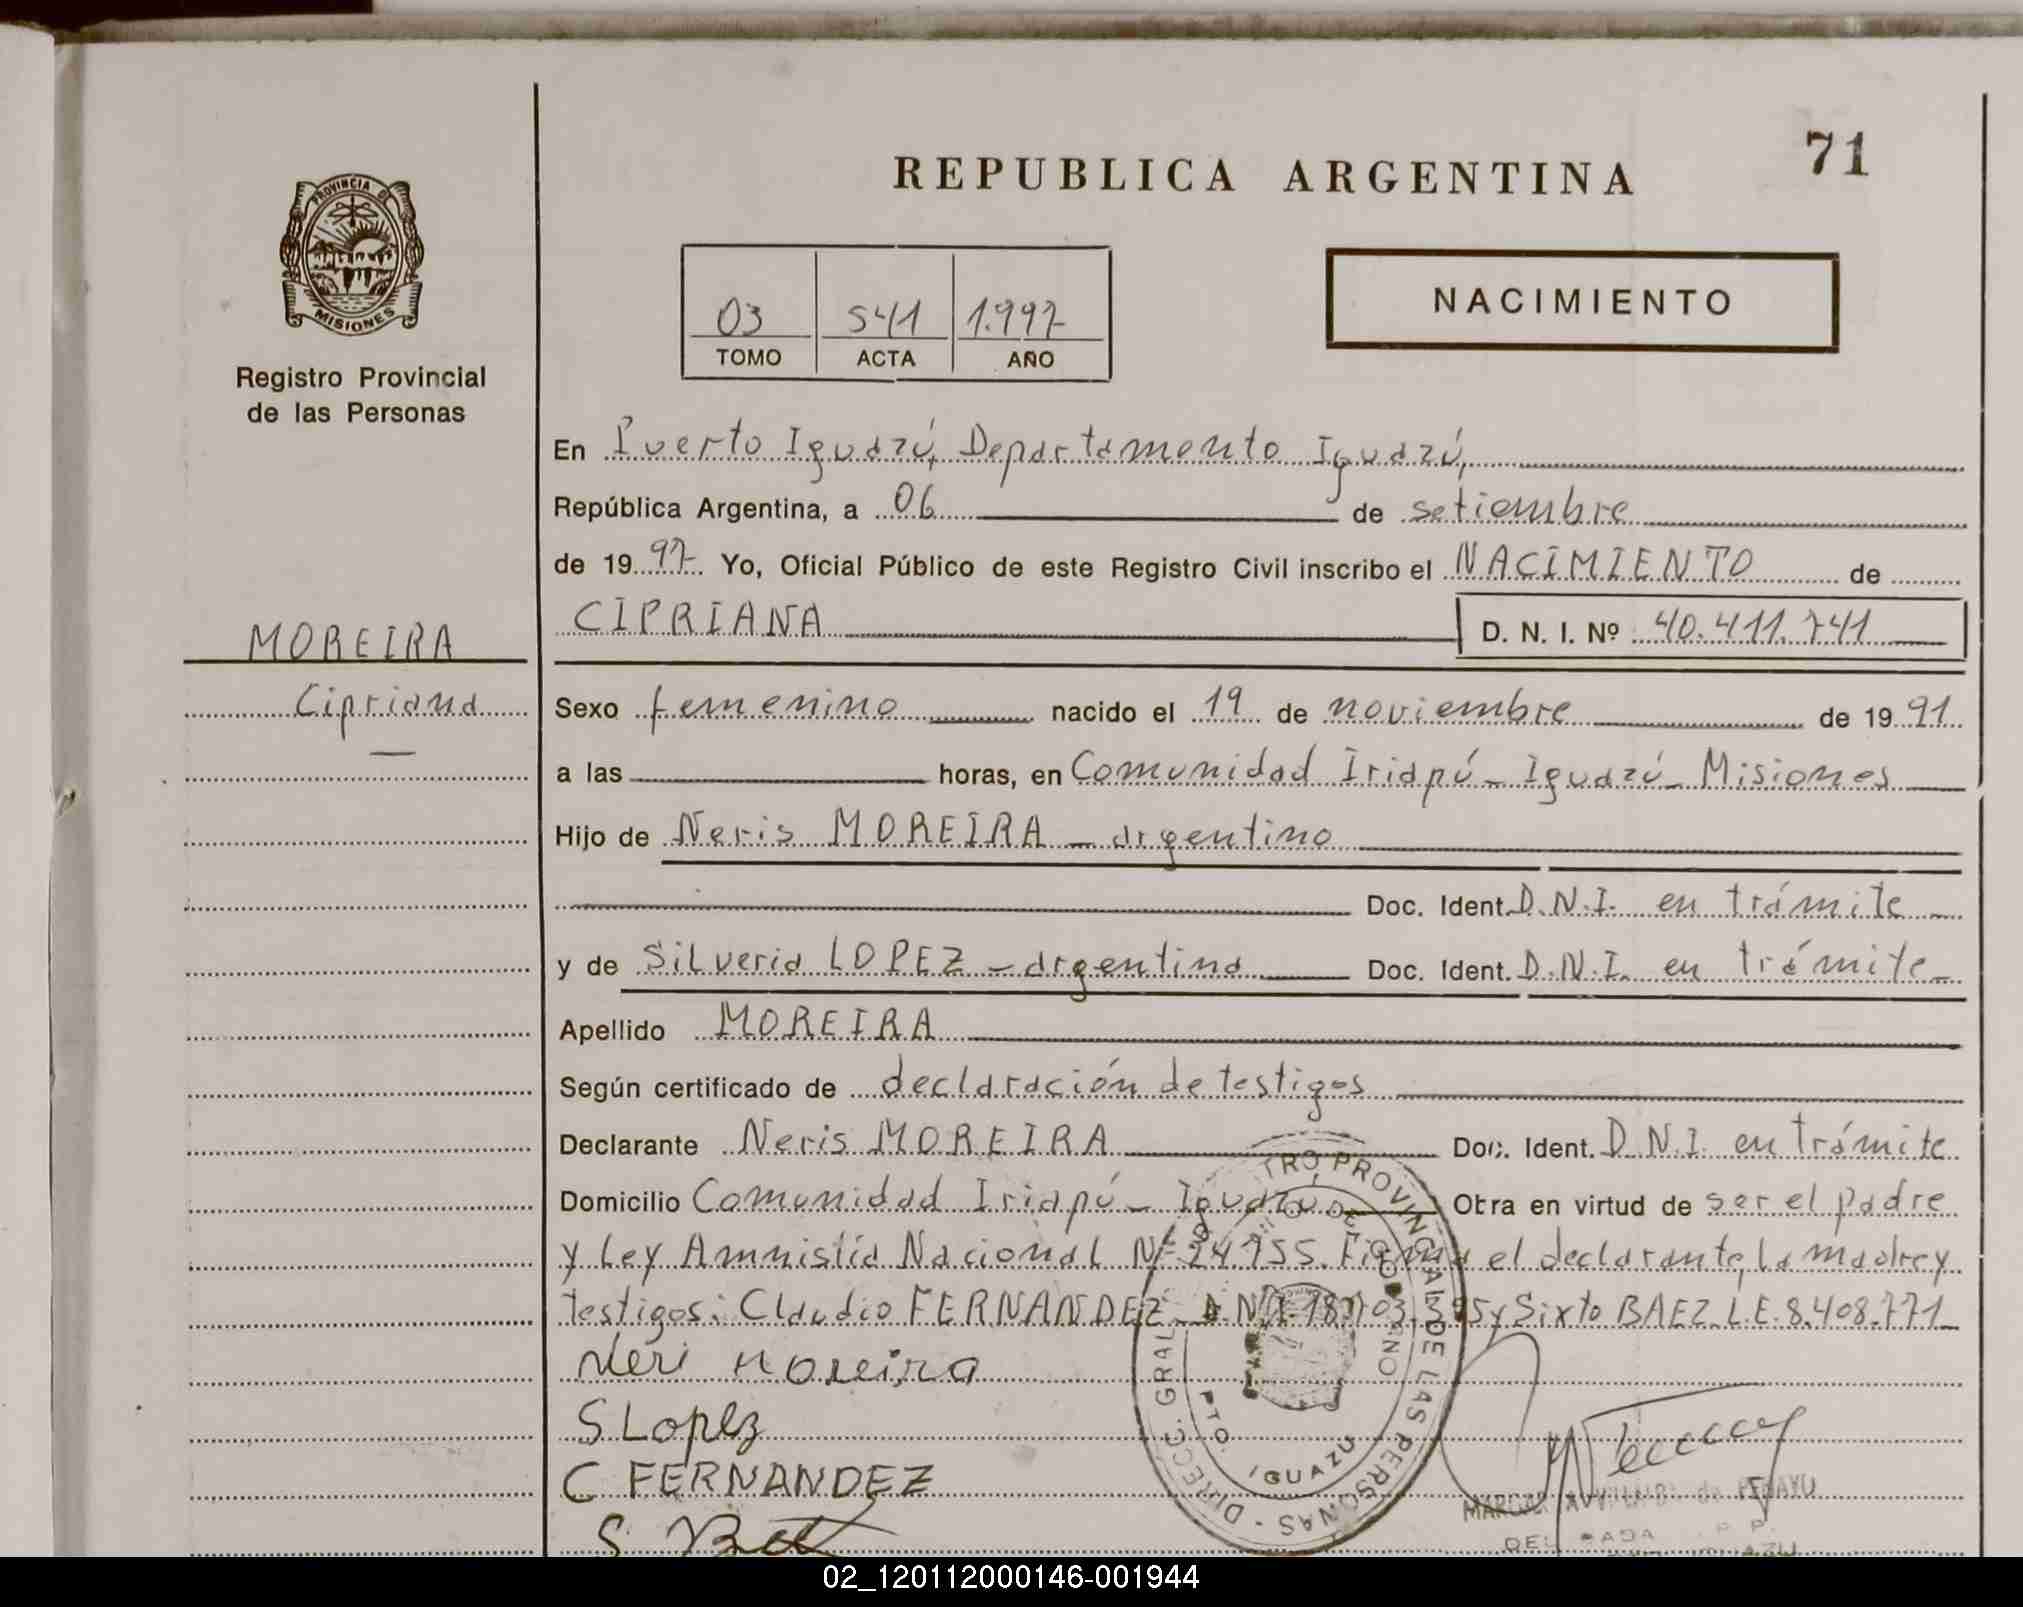 71
REPUBLICA ARGENTINA
PROVINCIA DE
MISIONES
Registro Provincial
de las Personas
03 541 1.997
TOMO ACTA AÑO
NACIMIENTO
En Puerto Iguazú, Departamento Iguazú,
República Argentina, a 06 de setiembre
de 1997 Yo, Oficial Público de este Registro Civil inscribo el NACIMIENTO de
CIPRIANA D. N. I. Nº 40.411.741
MOREIRA
Cipriana
Sexo femenino nacido el 19 de noviembre de 1991
a las horas, en Comunidad Iriapú - Iguazú - Misiones
Hijo de Neris MOREIRA - argentino
Doc. Ident. D.N.I. en trámite
y de Silveria LOPEZ - argentina Doc. Ident. D.N.I. en trámite
Apellido MOREIRA
Según certificado de declaración de testigos
Declarante Neris MOREIRA Doc. Ident. D.N.I. en trámite
Domicilio Comunidad Iriapú - Iguazú Otra en virtud de ser el padre
y Ley Amnistía Nacional Nº 24.755. Firma el declarante, la madre y
testigos: Claudio FERNANDEZ D.N.I. y Sixto BAEZ L.E. 8.408.771
Neri Moreira
S Lopez
C FERNANDEZ
DIRECC. GRAL. PROVINCIAL DE LAS PERSONAS
PTO. IGUAZU
02_120112000146-001944